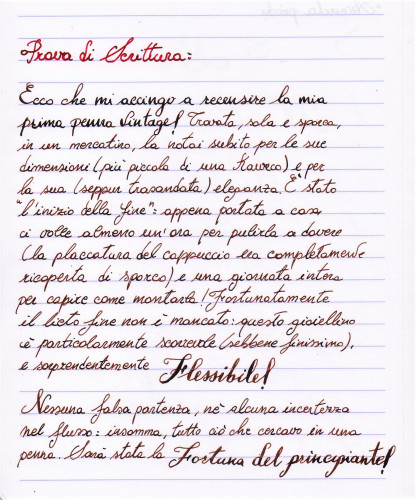 Prova di Scrittura:
Ecco che mi accingo a recensire la mia
prima penna Vintage! Trovata, sola e sporca,
in un mercatino, la notai subito per le sue
dimensioni (più piccola di una Kaweco) e per
la sua (seppur trasandata) eleganza. È stato
"l'inizio della fine": appena portata a casa
ci volle almeno un'ora per pulirla a dovere
(la placcatura del cappuccio era completamente
ricoperta di sporco) e una giornata intera
per capire come montarla! Fortunatamente
il lieto fine non è mancato: questo gioiellino
è particolarmente scorrevole (sebbene finissimo),
e sorprendentemente Flessibile!
Nessuna falsa partenza, nè alcuna incertezza
nel flusso: insomma, tutto ciò che cercavo in una
penna. Sarà stata la Fortuna del principiante!